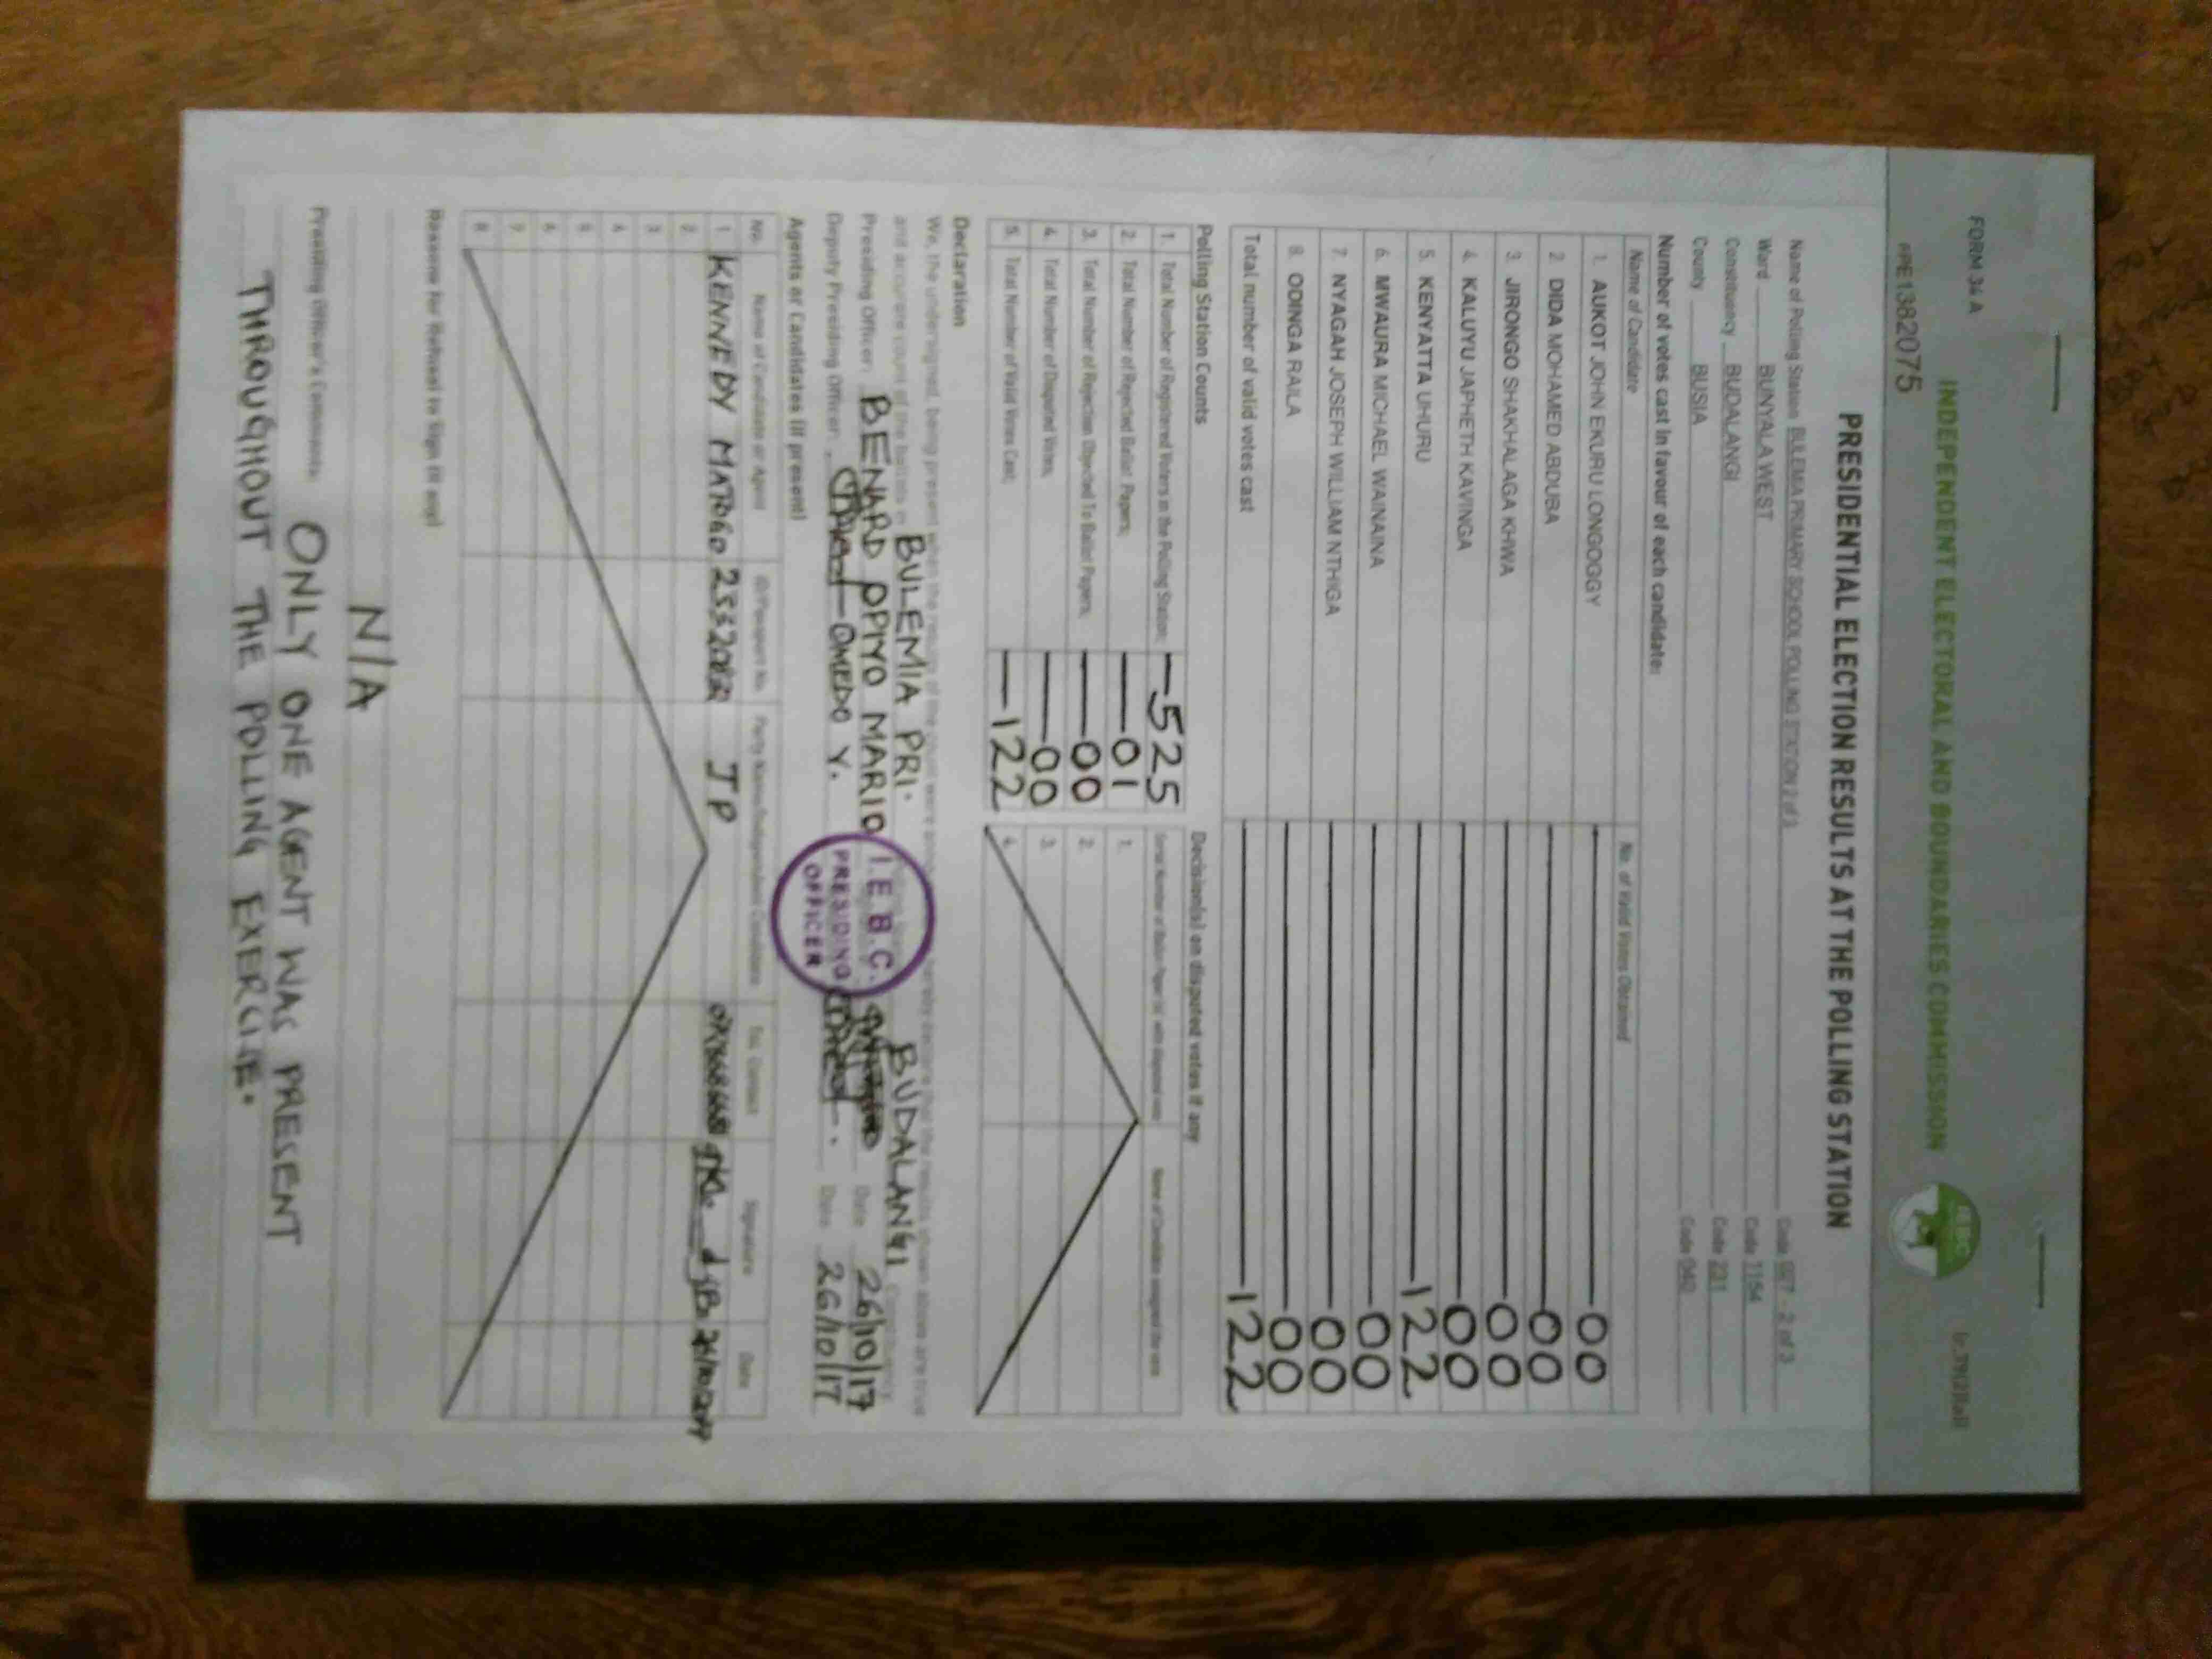 FORM 34 A
INDEPENDENT ELECTORAL AND BOUNDARIES COMMISSION
IEBC
PRESIDENTIAL ELECTION RESULTS AT THE POLLING STATION
Name of Polling Station BULEMIA PRIMARY SCHOOL POLLING STATION 2 of 3 Code 2 of 3
Ward BUNYALA WEST Code 1154
Constituency BUDALANGI Code 231
County BUSIA Code 040
Number of votes cast in favour of each candidate:
Name of Candidate No. of Valid Votes Obtained
1. AUKOT JOHN EKURU LONGOGGY 00
2. DIDA MOHAMED ABDUBA 00
3. JIRONGO SHAKHALAGA KHWA 00
4. KALUYU JAPHETH KAVINGA 00
5. KENYATTA UHURU 122
6. MWAURA MICHAEL WAINAINA 00
7. NYAGAH JOSEPH WILLIAM NTHIGA 00
8. ODINGA RAILA 00
Total number of valid votes cast 122
Polling Station Counts
1. Total Number of Registered Voters in the Polling Station; 525
2. Total Number of Rejected Ballot Papers; 01
3. Total Number of Rejection Objected To Ballot Papers; 00
4. Total Number of Disputed Votes; 00
5. Total Number of Valid Votes Cast; 122
Decision(s) on disputed votes if any
1.
2.
3.
4.
Declaration
We, the undersigned, being present when the results of the
BULEMIA PRI. BUDALANGI
Presiding Officer: BENARD OPIYO MARIO Date 26/10/17
Deputy Presiding Officer: OMEDO Y. Date 26/10/17
I.E.B.C.
PRESIDING
OFFICER
Agents or Candidates (if present)
No. Name of Candidate or Agent ID/Passport No. Party Name/Independent Candidate Tel. Contact Signature Date
1 KENNEDY JP
2
3
4
5
6
7
8
Reasons for Refusal to Sign (if any)
N/A
Presiding Officer's Comments: ONLY ONE AGENT WAS PRESENT
THROUGHOUT THE POLLING EXERCISE.